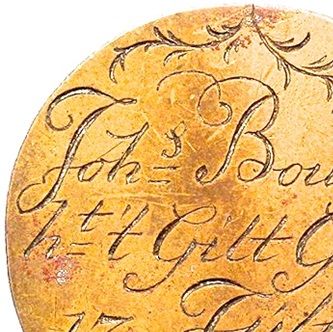 Joh:s Bou
h:t't Gilt G